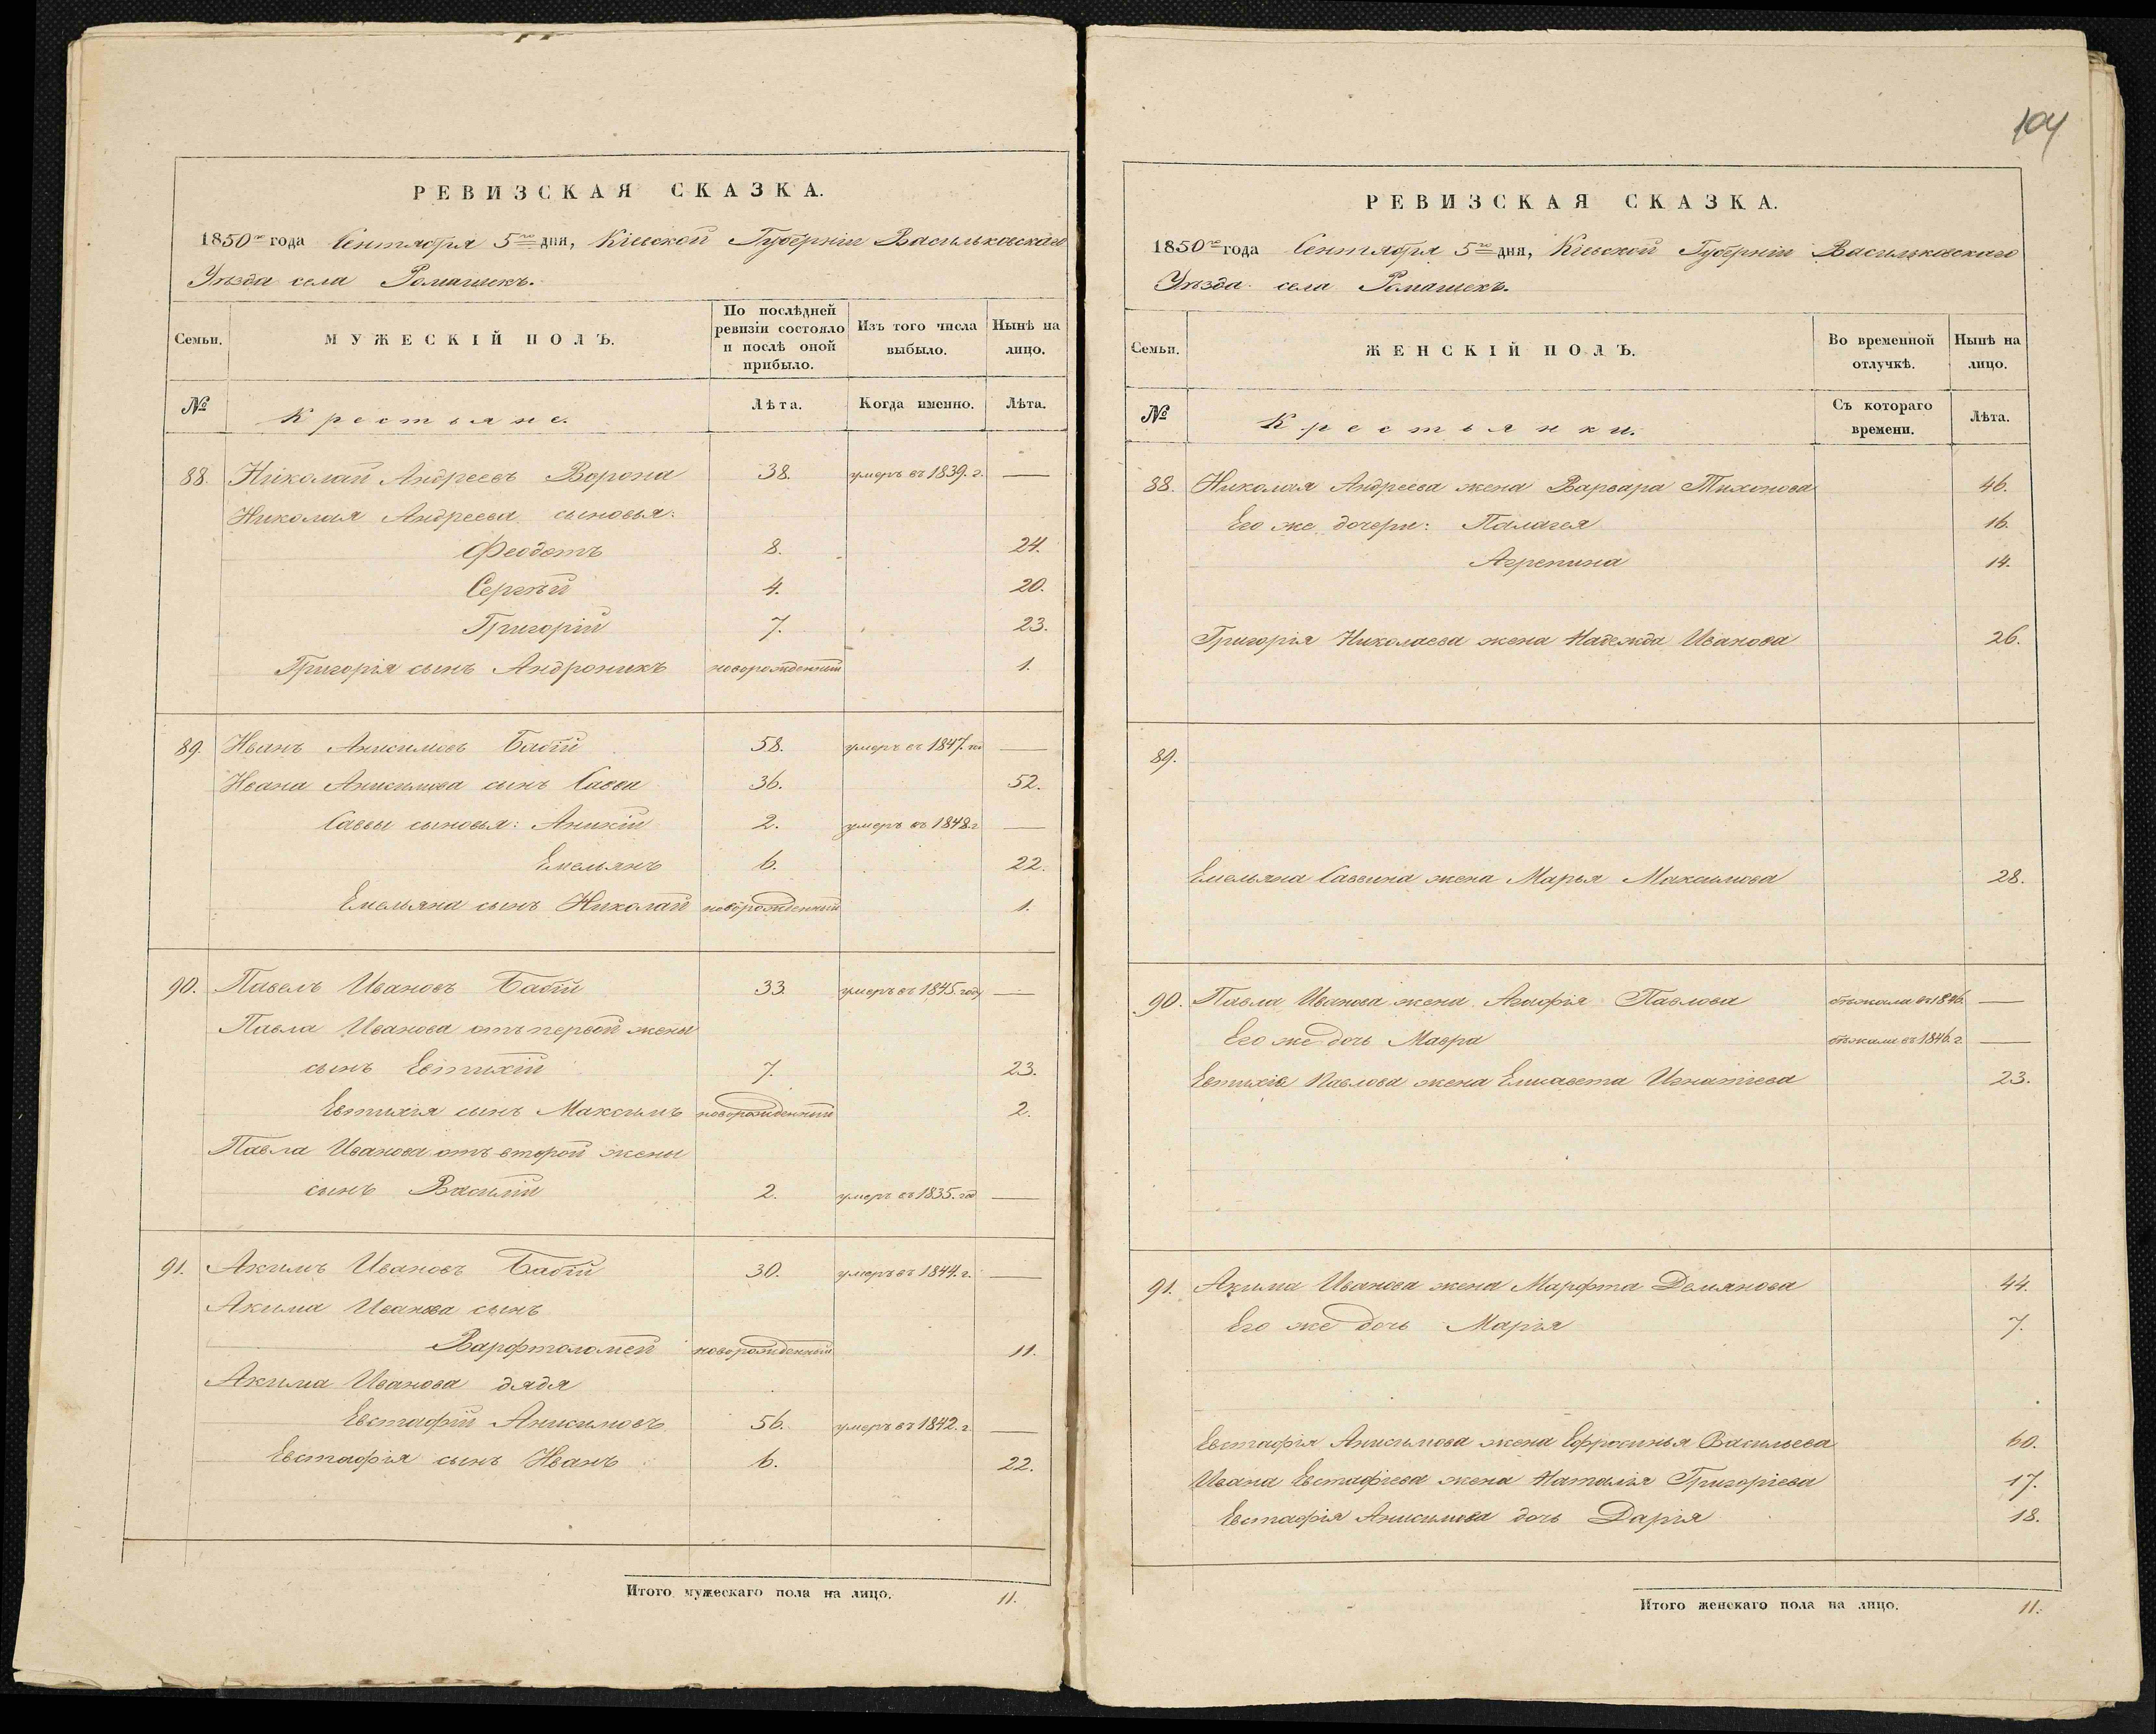 РЕВИЗСКАЯ СКАЗКА.
1850го года Сентября 5го дня, Кіевской Губерніи Васильковскаго
Уѣзда села Ромашекъ.
Семьи.
МУЖЕСКІЙ ПОЛЪ.
По послѣдней ревизіи состояло и послѣ оной прибыло.
Изъ того числа выбыло.
Нынѣ на лицо.
№
Крестьяне.
Лѣта.
Когда именно.
Лѣта.
88. Николай Андреевъ Ворона 38. умеръ въ 1839. г. —
Николая Андреева сыновья:
Феодотъ 8. 24.
Сергѣй 4. 20.
Григорій 7. 23.
Григорія сынъ Андроникъ новорожденный 1.
89. Иванъ Анисимовъ Бабій 58. умеръ въ 1847. —
Ивана Анисимова сынъ Савва 36. 52.
Саввы сыновья: Аникій 2. умеръ въ 1848 г —
Емельянъ 6. 22.
Емельяна сынъ Николай новорожденный 1.
90. Павелъ Ивановъ Бабій 33. умеръ въ 1845. году —
Павла Иванова отъ первой жены
сынъ Евтихій 7. 23.
Евтихія сынъ Максимъ новорожденный 2.
Павла Иванова отъ второй жены
сынъ Василій 2. умеръ въ 1835. го —
91. Акимъ Ивановъ Бабій 30. умеръ въ 1844. г. —
Акима Иванова сынъ
Варфтоломей новорожденный 11.
Акима Иванова дядя
Евстафій Анисимовъ 56. умеръ въ 1842. г. —
Евстафія сынъ Иванъ 6. 22.
Итого мужескаго пола на лицо. 11.
104
РЕВИЗСКАЯ СКАЗКА.
1850го года Сентября 5го дня, Кіевской Губерніи Васильковскаго
Уѣзда села Ромашекъ.
Семьи.
ЖЕНСКІЙ ПОЛЪ.
Во временной отлучкѣ.
Нынѣ на лицо.
№
Крестьянки.
Съ котораго времени.
Лѣта.
88. Николая Андреева жена Варвара Тихонова 46.
Его же дочери: Палагея 16.
Агрепина 14.
Григорія Николаева жена Надежда Иванова 26.
89.
Емельяна Саввина жена Марья Максимова 28.
90. Павла Иванова жена Агафія Павлова бѣжала въ 1846. —
Его же дочь Мавра бѣжали въ 1846. г. —
Евтихія Павлова жена Елисавета Игнатіева 23.
91. Акима Иванова жена Марфта Демянова 44.
Его же дочь Марія 7.
Евстафія Анисимова жена Ефросинья Васильева 60.
Ивана Евстафіева жена Наталія Григоріева 17.
Евстафія Анисимова дочь Дарія 18.
Итого женскаго пола на лицо. 11.